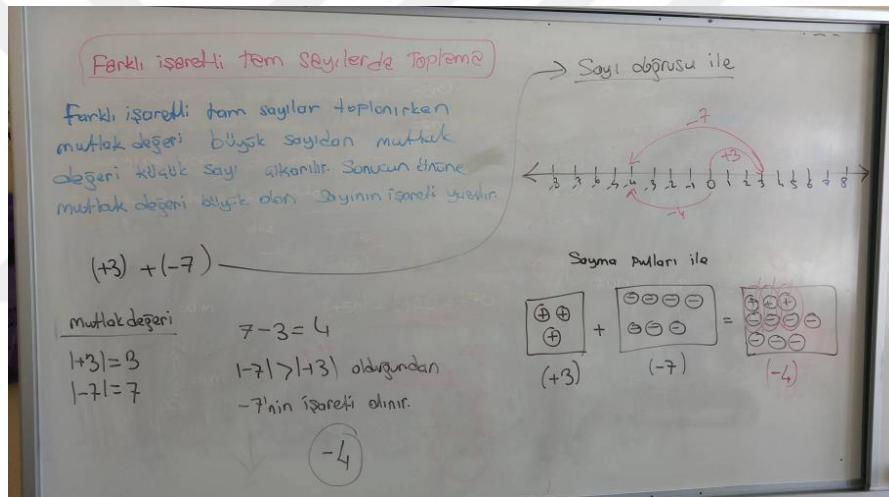 Farklı işaretli tam sayılarda Toplama
Farklı işaretli tam sayılar toplanırken
mutlak değeri büyük sayıdan mutlak
değeri küçük sayı çıkarılır. Sonucun önüne
mutlak değeri büyük olan sayının işareti yazılır.
(+3) + (-7)
mutlak değeri
|+3|=3
|-7|=7
7-3=4
|-7|>|+3| olduğundan
-7'nin işareti alınır.
-4
Sayı doğrusu ile
-7
+3
-4 -3 -2 -1 0 1 2 3 4 5 6 7 8
-4
Sayma pulları ile
+ + +
+
- - - - - - -
=
+ + + - - - - - - -
(+3) (-7) (-4)